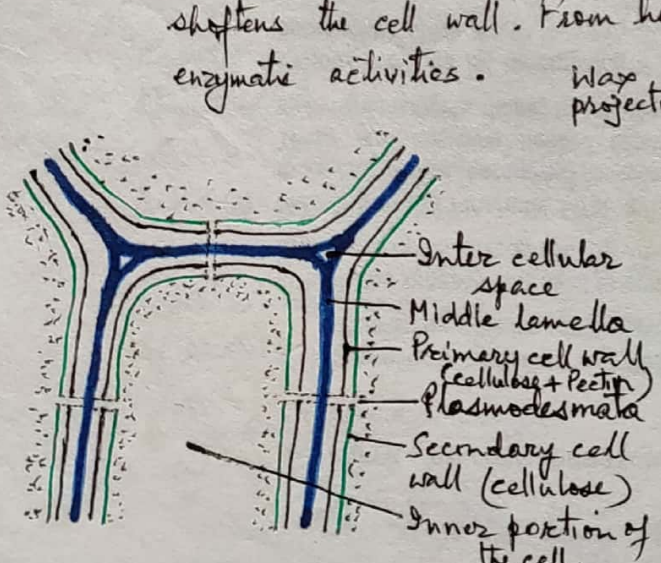 shoftens the cell wall. From h
enzymatic activities.
Wax
project
Inter cellular
space
Middle lamella
Primary cell wall
(cellulose + Pectin)
Plasmodesmata
Secondary cell
wall (cellulose)
Inner portion of
the cell